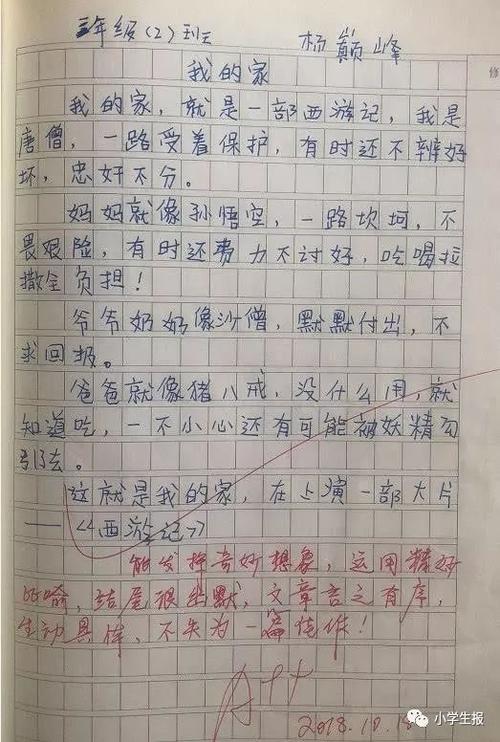 三年级（2）班 杨巅峰
我的家
我的家，就是一部西游记，我是
唐僧，一路受着保护，有时还不辨好
坏，忠奸不分。
妈妈就像孙悟空，一路坎坷，不
畏艰险，有时还费力不讨好，吃喝拉
撒全负担！
爷爷奶奶像沙僧，默默付出，不
求回报。
爸爸就像猪八戒，没什么用，就
知道吃，一不小心还有可能被妖精勾
引去。
这就是我的家，在上演一部大片
——《西游记》
能发挥奇妙想象，运用精妙
比喻，结尾很幽默，文章言之有序，
生动具体，不失为一篇佳作！
A++
2018.10.18
修
小学生报